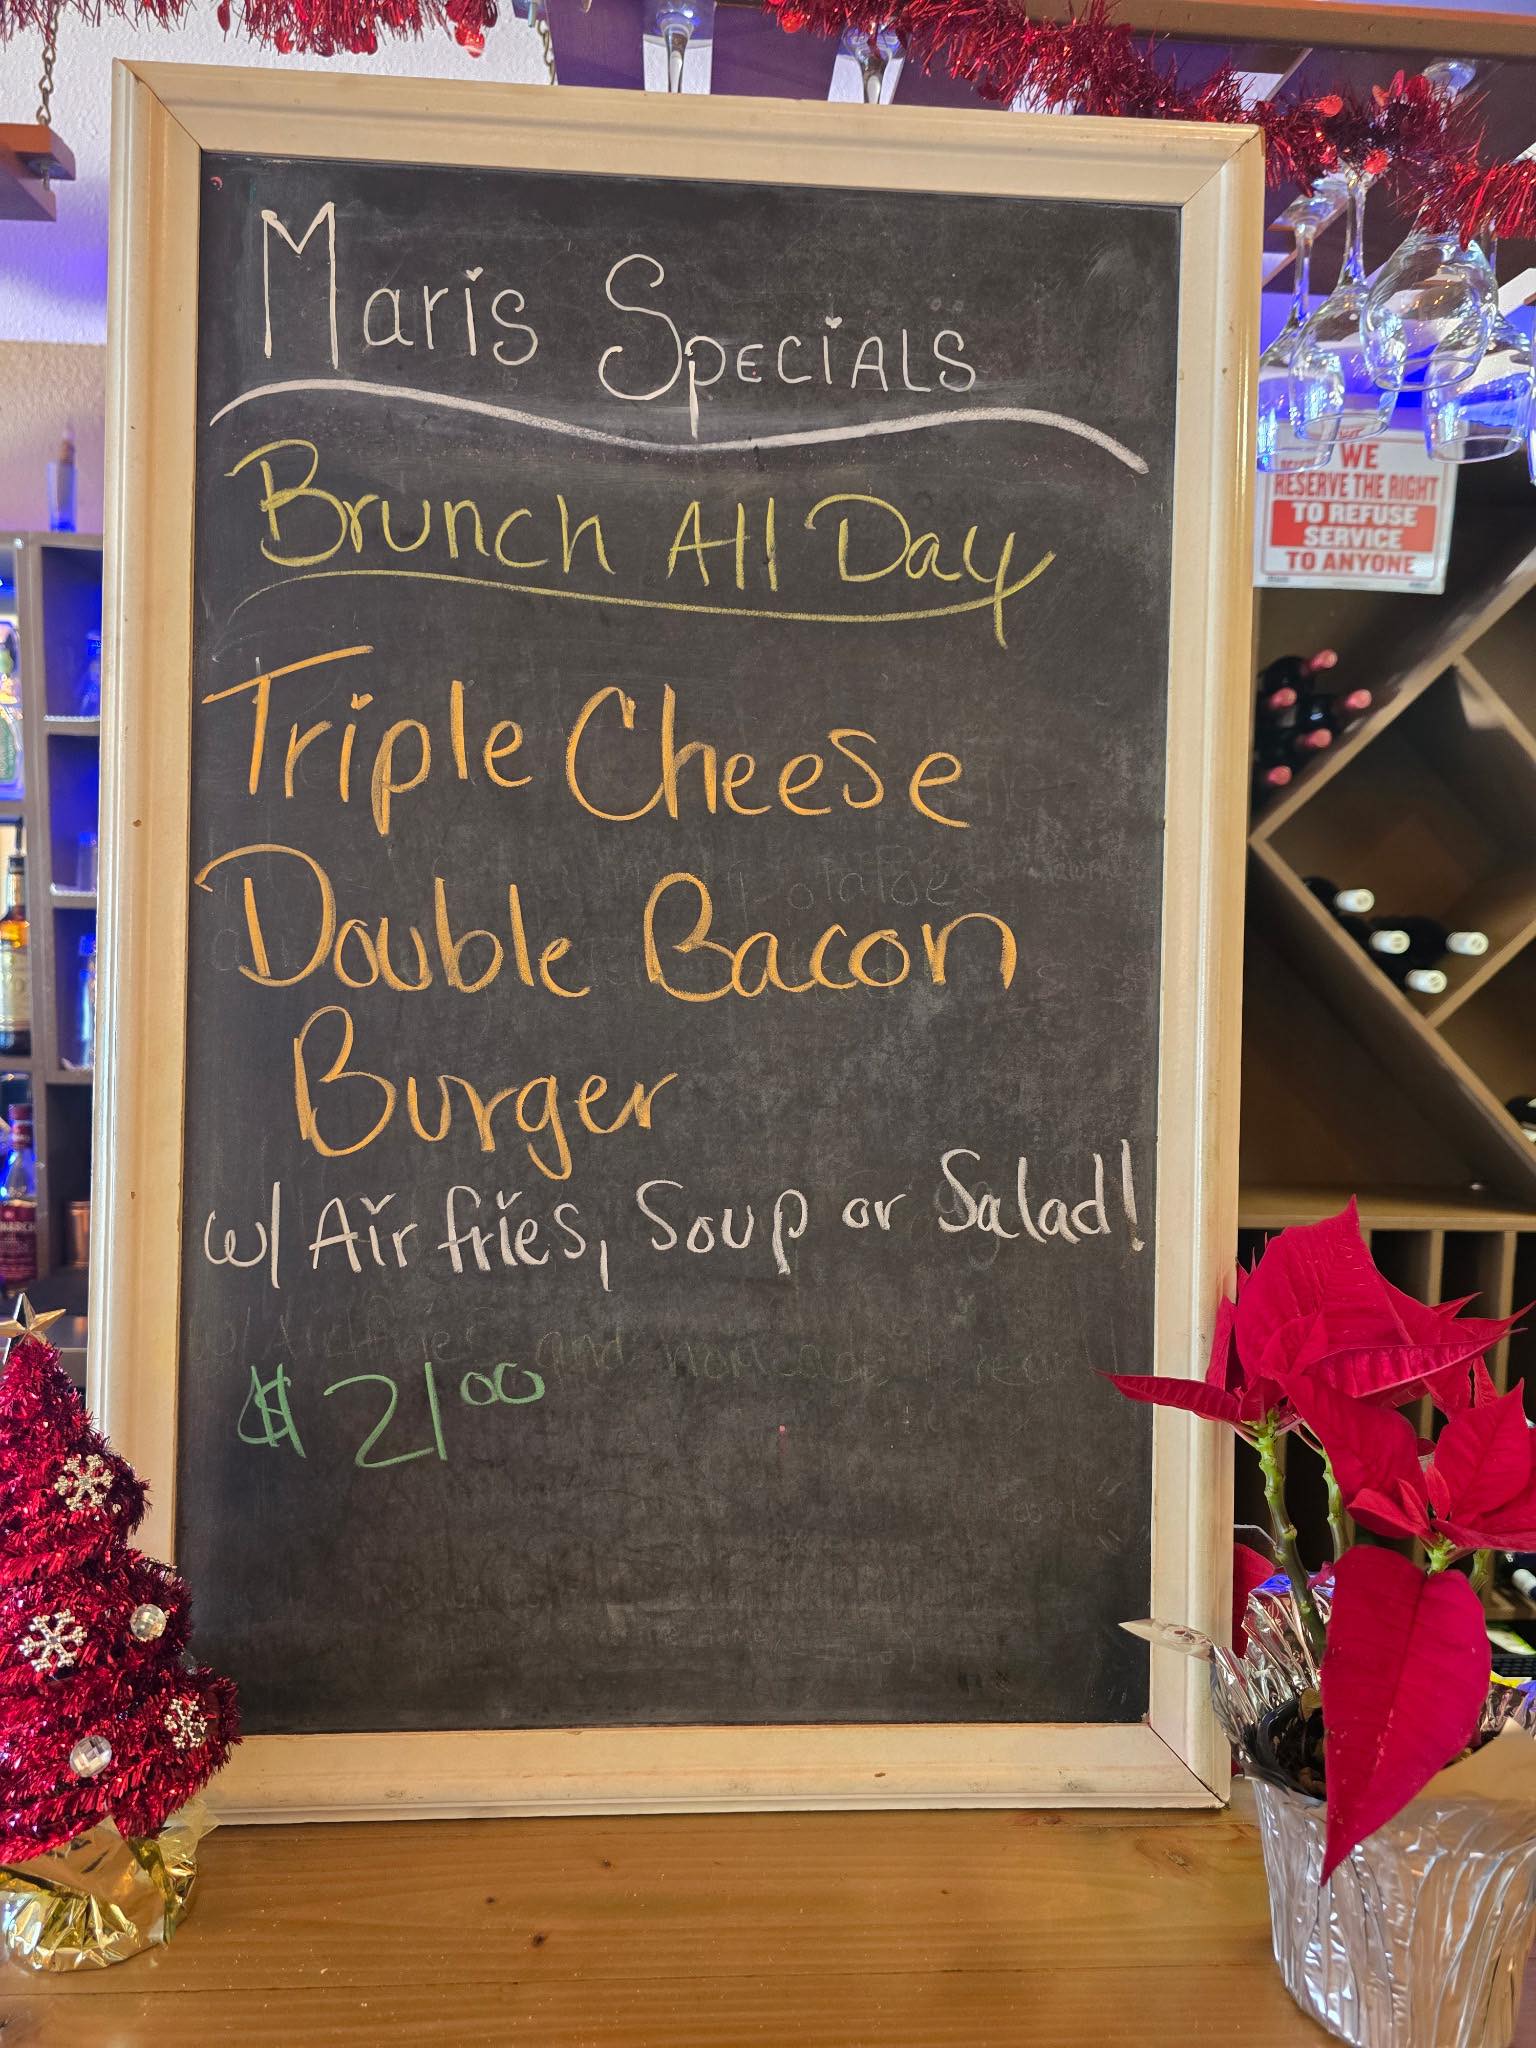 Maris Specials
Brunch All Day
Triple Cheese
Double Bacon
Burger
w/ Air fries, Soup or Salad!
$2100
WE
RESERVE THE RIGHT
TO REFUSE
SERVICE
TO ANYONE